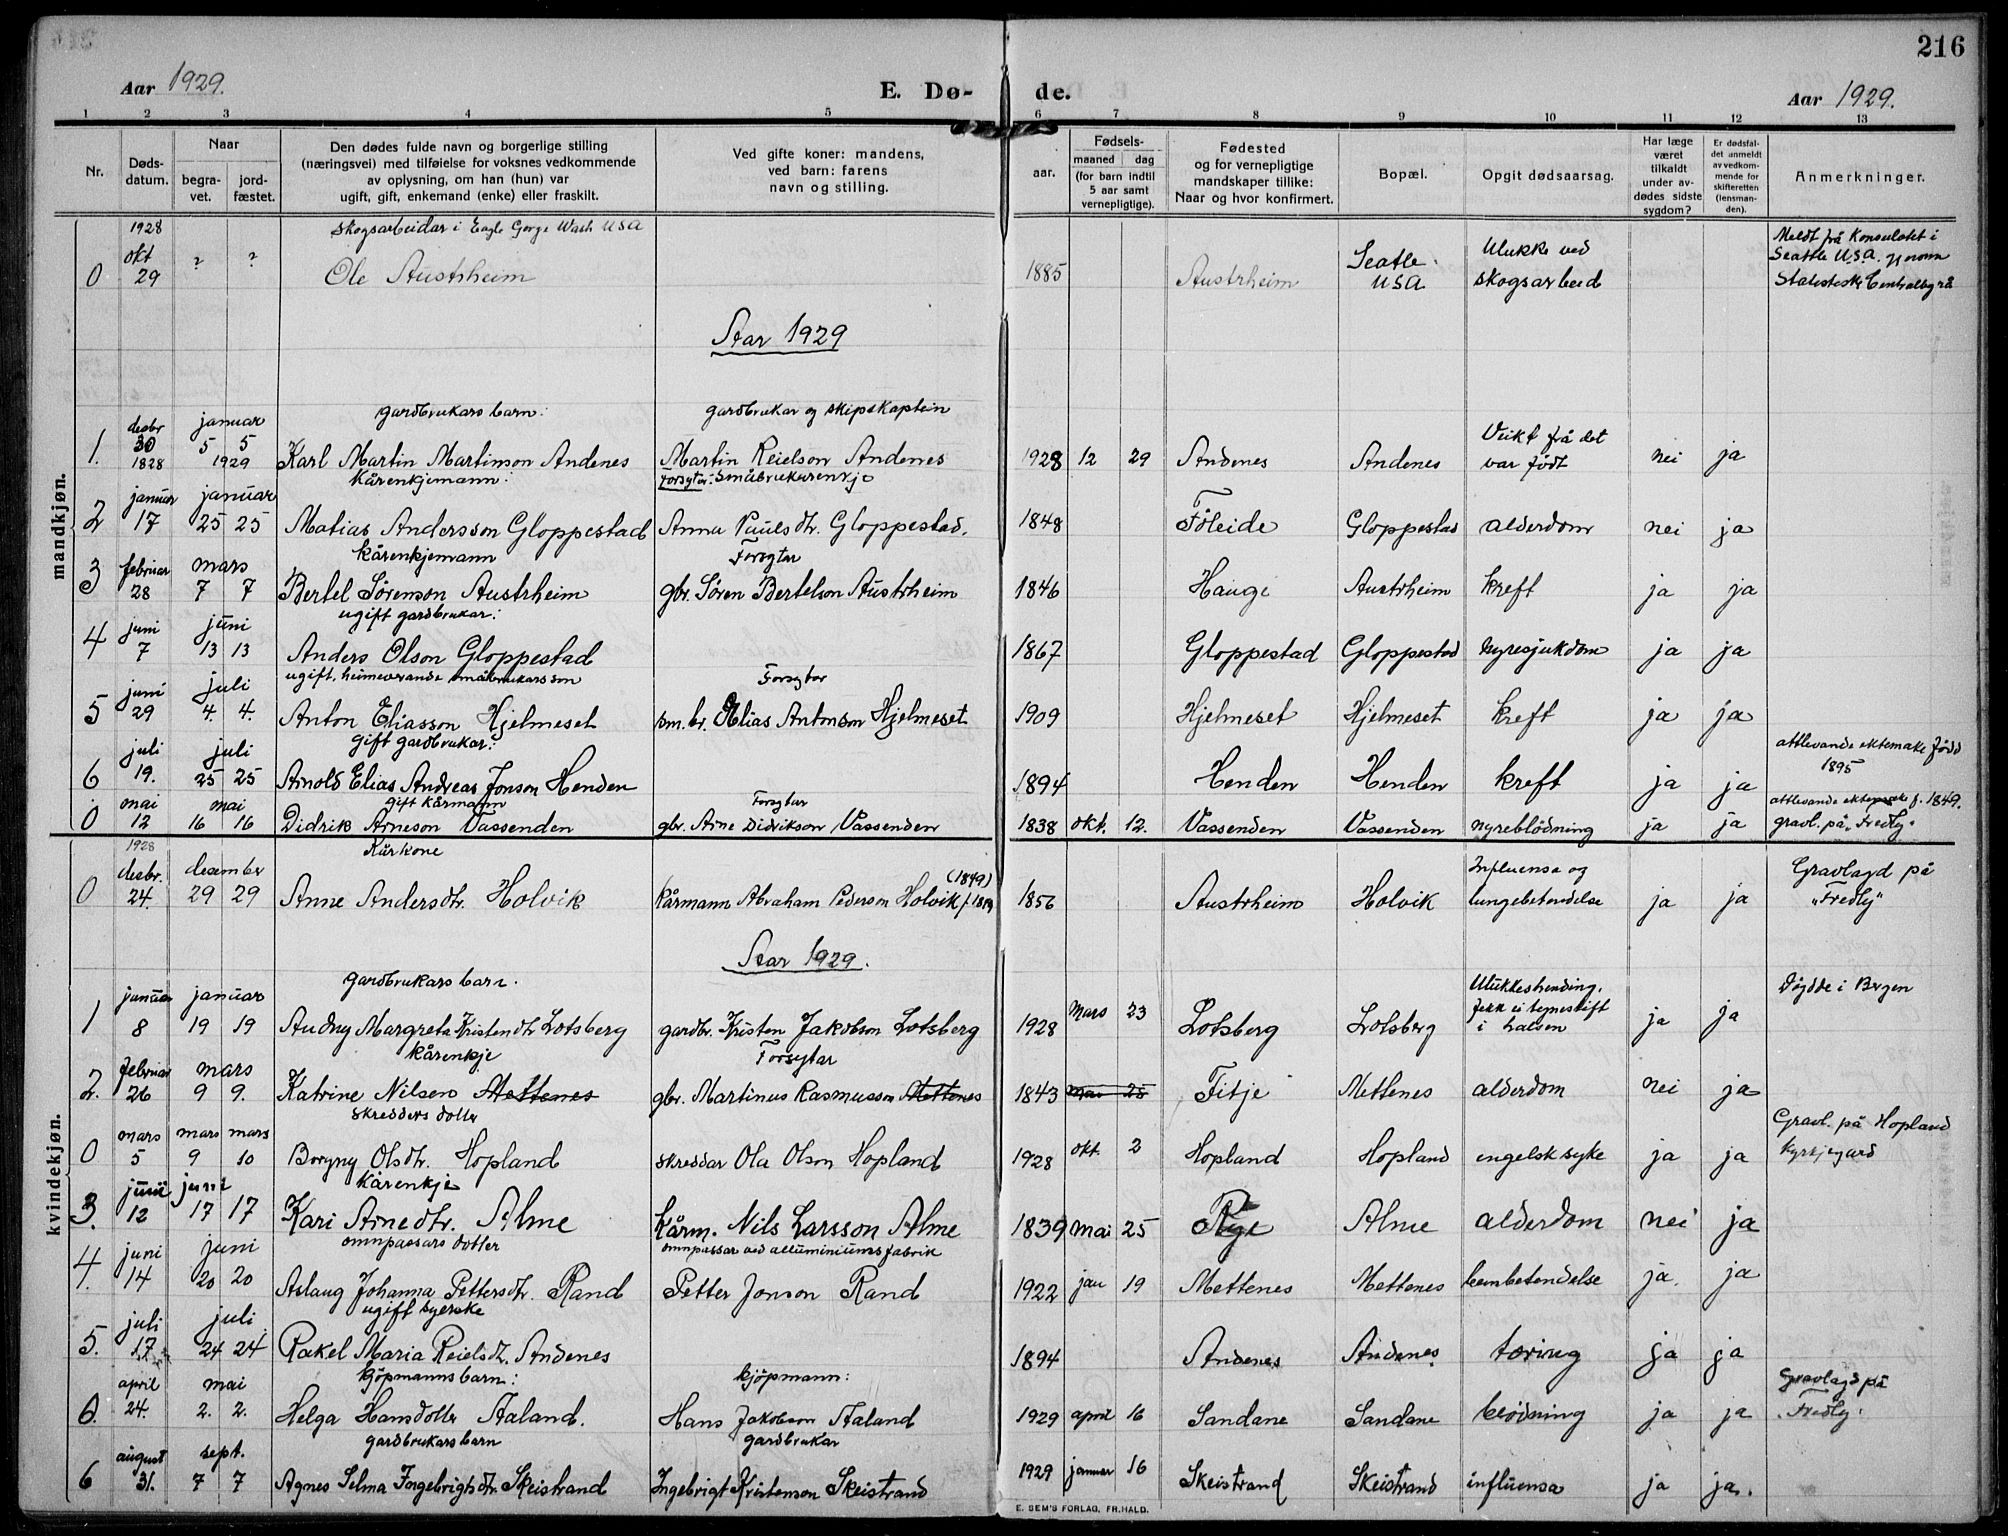 216
Aar 1929. E. Dø- de. Aar 1929.
1 2 3 4 5 6 7 8 9 10 11 12 13
Nr.
Døds-
datum.
Naar
begra-
vet.
jord-
fæstet.
Den dødes fulde navn og borgerlige stilling
(næringsvei) med tilføielse for voksnes vedkommende
av oplysning, om han (hun) var
ugift, gift, enkemand (enke) eller fraskilt.
Ved gifte koner: mandens,
ved barn: farens
navn og stilling.
Fødsels-
aar. maaned dag
(for barn indtil
5 aar samt
vernepligtige).
Fødested
og for vernepligtige
mandskaper tillike:
Naar og hvor konfirmert.
Bopæl.
Opgit dødsaarsag.
Har læge
været
tilkaldt
under av-
dødes sidste
sygdom?
Er dødsfal-
det anmeldt
av vedkom-
mende for
skifteretten
(lensman-
den).
Anmerkninger.
mandkjøn.
1928 skogsarbeidar i Eagle Gorge Wash USA
0 okt 29 ? ? Ole Austrheim 1885 Austrheim Seatle USA Ulukke ved skogsarbeid Meldt frå Konsulatet i Seattle U.S.A. gj. Statistiske Centralbyrå
Aar 1929
gardbrukars barn: gardbrukar og skipskaptein
1. desbr 30 1828 januar 5 5 1929 Karl Martin Martinson Andenes Martin Reielson Andenes 1928 12 29 Andenes Andenes Veikt frå det var født nei ja
Kårenkjemann: Forsytar: Småbrukarenkje
2 januar 17 januar 25 25 Matias Andersson Gloppestad Anna Paulsdtr. Gloppestad. 1848 Føleide Gloppestad alderdom nei ja
kårenkjemann Forsytar
3 februar 28 mars 7 7 Bertel Sørenson Austrheim gbr. Søren Bertelson Austrheim 1846 Hauge Austrheim kreft ja ja
ugift gardbrukar:
4 juni 7 juni 13 13 Anders Olson Gloppestad 1867 Gloppestad Gloppestad nyresjukdom ja ja
ugift, heimeverande småbrukarsson Forsytar
5 juni 29 juli 4. 4. Anton Eliasson Hjelmeset sm. br. Elias Antonson Hjelmeset 1909 Hjelmeset Hjelmeset kreft ja ja
gift gardbrukar:
6 juli 19. juli 25 25 Arnold Elias Andreas Jonson Henden 1894 Henden Henden kreft ja ja attlevande ektemake fødd 1895
gift kårmann Forsytar
0 mai 12 mai 16 16 Didrik Arneson Vassenden gbr. Arne Didrikson Vassenden 1838 okt. 12. Vassenden Vassenden nyreblødning ja ja attlevande ektemake f. 1849. gravl. på "Fredly"
kvindekjøn.
1928 Kårkone
0 desbr. 24. desember 29 29 Anne Andersdtr. Holvik kårmann Abraham Pederson Holvik (1849) 1856 Austrheim Holvik Influensa og lungebetendelse ja ja Gravlagd på "Fredly"
Aar 1929.
gardbrukars barn.
1 januar 8 januar 19 19 Audny Margreta Kristendtr Lotsberg gardbr. Kristen Jakobson Lotsberg 1928 Mars 23 Lotsberg Lotsberg Ulukkeshending. fekk ei tegnestift i halsen ja ja Døydde i Bergen
kårenkje Forsytar
2. februar 26 mars 9 9. Katrine Nilsen Mettenes gbr. Martinus Rasmusson Mettenes 1843 mai 25 Fitje Mettenes alderdom nei ja
skredders dotter
0 mars 5 mars 9 mars 10 Borgny Olsdtr. Hopland skreddar Ola Olson Hopland 1928 okt 2 Hopland Hopland engelsk syke ja ja Gravl. på Hopland kyrkjegard
Kårenkje
3. juni 12 juni 17 17 Kari Arnedtr. Alme Kårm. Nils Larsson Alme 1839 mai 25 Ryge Alme alderdom nei ja
omnpassars dotter omnpassar ved alluminiums fabrik
4. juni 14 juni 20 20 Aslaug Johanna Pettersdtr. Rand Petter Jonson Rand 1922 jan 19 Mettenes Mettenes beinbetendelse ja. ja
ugift syerske
5. juli 17 juli 24 24 Rakel Maria Reielsdt. Andenes 1894 Andenes Andenes tæring ja ja
kjøpmanns barn: kjøpmann:
0. april 24. mai 2. 2. Helga Hansdotter Aaland. Hans Jakobson Aaland 1929 april 16 Sandane Sandane blødning ja ja Gravlagd på "Fredly".
gardbrukars barn gardbrukar
6 august 31. sept. 7 7 Agnes Selma Ingebrigtsdtr. Skeistrand Ingebrigt Kristenson Skeistrand 1929 januar 16 Skeistrand Skeistrand influensa ja ja.
E. SEM'S FORLAG, FR.HALD.